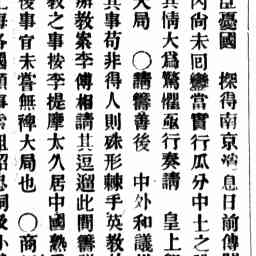 臣憂國　探得南京消息日前傳聞
內尙未回鑾當實行瓜分中土之
其情大爲驚懼亟行奏請　皇上
大局　〇請籌善後　中外和議
其事苟非得人則殊形棘手英敎
辦敎案李傅相請其逗遛此間籌
敎之事按李提摩太久居中國熟
後事宜未嘗無裨大局也　〇商
海各國領事